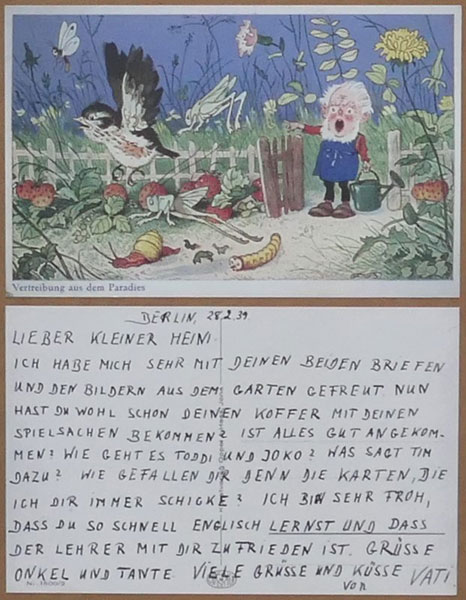 Vertreibung aus dem Paradies
BERLIN, 28.2.39
LIEBER KLEINER HEINI.
ICH HABE MICH SEHR MIT DEINEN BEIDEN BRIEFEN
UND DEN BILDERN AUS DEM GARTEN GEFREUT. NUN
HAST DU WOHL SCHON DEINEN KOFFER MIT DEINEN
SPIELSACHEN BEKOMMEN? IST ALLES GUT ANGEKOM-
MEN? WIE GEHT ES TODDI UND JOKO? WAS SAGT TIM
DAZU? WIE GEFALLEN DIR DENN DIE KARTEN, DIE
ICH DIR IMMER SCHICKE? ICH BIN SEHR FROH,
DASS DU SO SCHNELL ENGLISCH LERNST UND DASS
DER LEHRER MIT DIR ZUFRIEDEN IST. GRÜSSE
ONKEL UND TANTE. VIELE GRÜSSE UND KÜSSE
VON VATI.